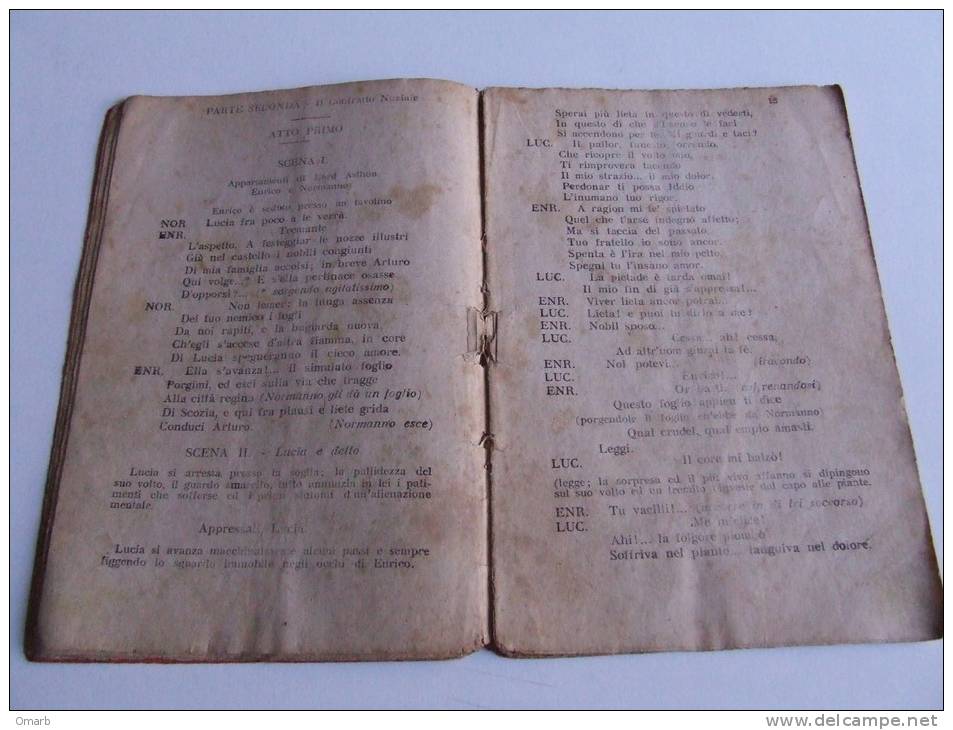 PARTE SECONDA - Il Contratto Nuziale
ATTO PRIMO
SCENA I.
Appartamenti di Lord Asthon
Enrico e Normanno
Enrico è seduto presso un tavolino
NOR Lucia fra poco a te verrà.
ENR. Tremante
L'aspetto. A festeggiar le nozze illustri
Già nel castello i nobili congiunti
Di mia famiglia accolsi; in breve Arturo
Qui volge... E s'ella pertinace osasse
D'opporsi?... (sorgendo agitatissimo)
NOR. Non temer: la lunga assenza
Del tuo nemico i fogli
Da noi rapiti, e la bugiarda nuova,
Ch'egli s'accese d'altra fiamma, in core
Di Lucia spegneranno il cieco amore.
ENR. Ella s'avanza!... il simulato foglio
Porgimi, ed esci sulla via che tragge
Alla città regina (Normanno gli dà un foglio)
Di Scozia, e qui fra plausi e liete grida
Conduci Arturo. (Normanno esce)
SCENA II. - Lucia e detto
Lucia si arresta presso la soglia; la pallidezza del
suo volto, il guardo smarrito, tutto annunzia in lei i pati-
menti che sofferse ed i primi sintomi d'un'alienazione
mentale.
Appressati, Lucia.
Lucia si avanza macchinalmente alcuni passi e sempre
figgendo lo sguardo immobile negli occhi di Enrico.
15
Sperai più lieta in questo dì vederti,
In questo dì che d'Imeneo le faci
Si accendono per te. Mi guardi e taci?
LUC. Il pallor, funesto, orrendo,
Che ricopre il volto mio,
Ti rimprovera tacendo
Il mio strazio... il mio dolor.
Perdonar ti possa Iddio
L'inumano tuo rigor.
ENR. A ragion mi fe' spietato
Quel che t'arse indegno affetto;
Ma si taccia del passato,
Tuo fratello io sono ancor.
Spenta è l'ira nel mio petto,
Spegni tu l'insano amor.
LUC. La pietade è tarda omai!
Il mio fin di già s'appressa!...
ENR. Viver lieta ancor potrai...
LUC. Lieta! e puoi tu dirlo a me?
ENR. Nobil sposo...
LUC. Cessa... ah! cessa,
Ad altr'uom giurai la fè.
ENR. Nol potevi... (iracondo)
LUC. Enrico!...
ENR. Or basti (raffrenandosi)
Questo foglio appien ti dice
(porgendole il foglio ch'ebbe da Normanno)
Qual crudel, qual empio amasti.
Leggi.
LUC. Il core mi balzò!
(legge; la sorpresa ed il più vivo affanno si dipingono
sul suo volto ed un tremito l'investe dal capo alle piante.
ENR. Tu vacilli!... (accorre in di lei soccorso)
LUC. Me infelice!
Ahi!... la folgore piombò
Soffriva nel pianto... languiva nel dolore.
Omarb
www.delcampe.net